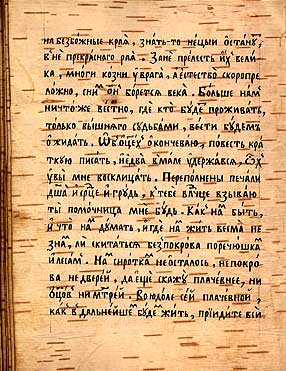 на безбожныѧ краѧ, знать-то нецыи останꙋт,
в не прекраснаго раѧ. Зане прелесть их вели-
ка, многи козни у врага, а естество скоропре-
ложно, с ним он борется века. Больше нам
ничто же вестно, где кто будет проживать,
только вышнѧго судьбами, вести будем
ожидать. Ѿ оцех окончеваю, повесть кра-
ткую писать, и едва вмале удержавсѧ, ѡх
увы мне восклицать. Переполнены печали
дша и срце и грудь, к тебе влчце взываю
ты помочница мне будь. Как нам быть,
и что нам думать, и где на жить весма не
знам, ли скитаться без покрова по речюшкам
и лесам. Нам сироткам не осталось, ни покро-
ва ни дверей, да еще скажу плачевнее, ни
оцов ни мтрей. Во юдоле сей плачевной,
как в дальнейшем будем жить, приидите вси